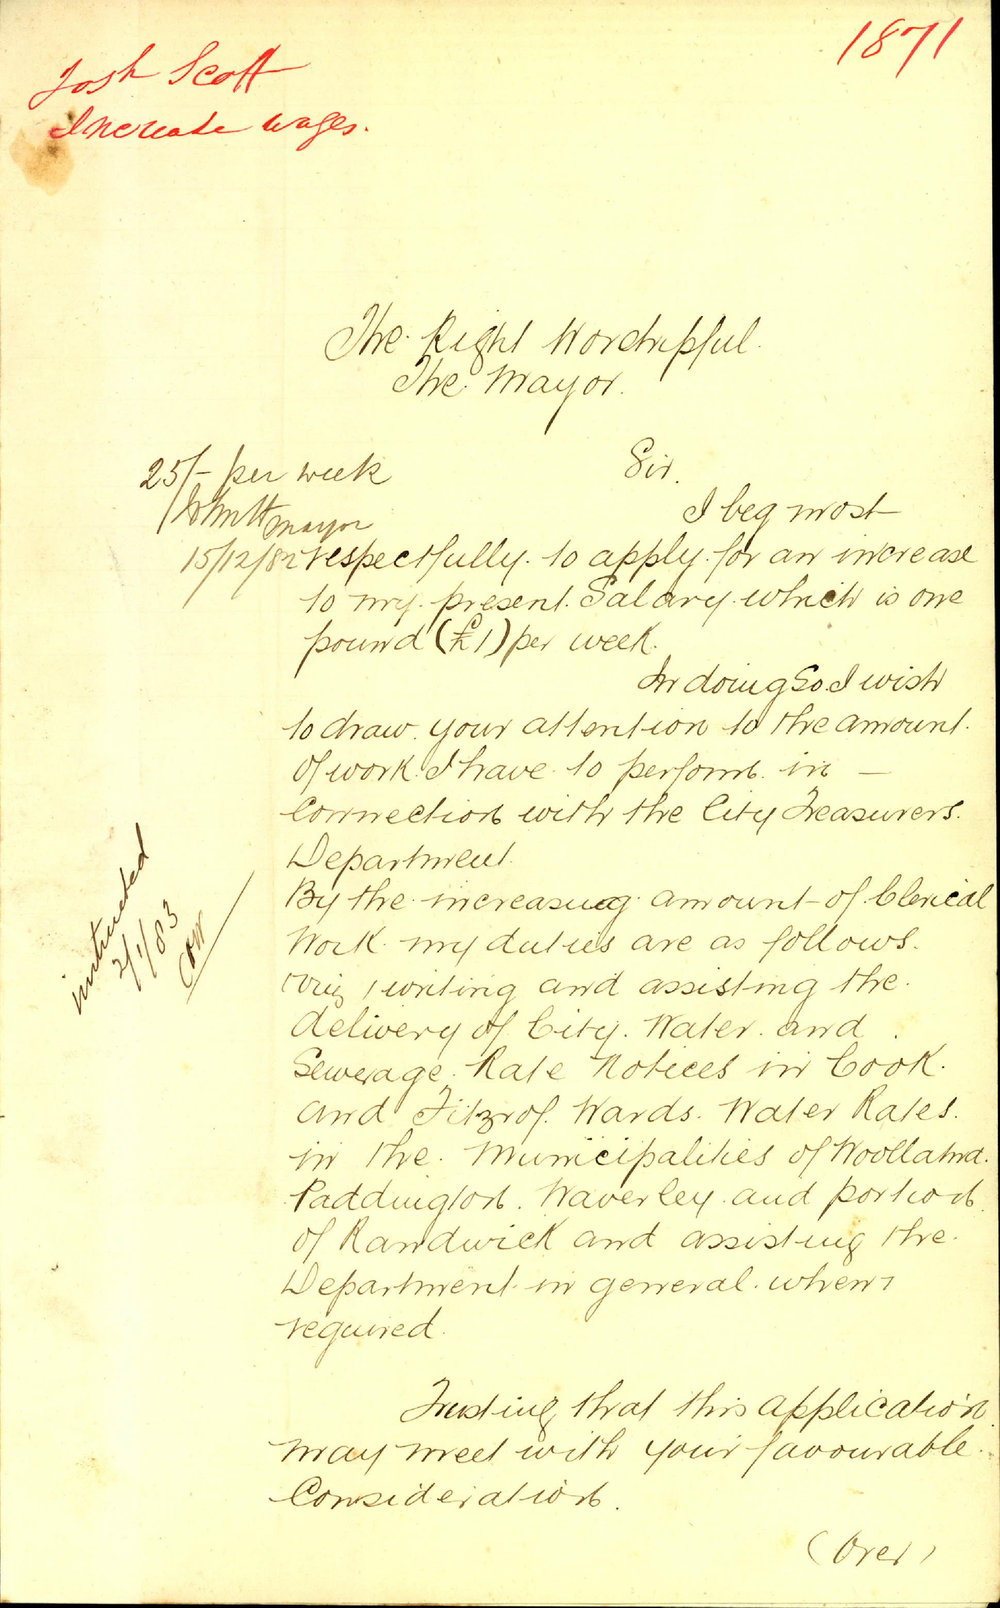 1871
Josh Scott
Increase wages.
The Right Worshipful
The Mayor.
25/- per week
mayor
15/12/82
Sir,
I beg most
respectfully to apply for an increase
to my present Salary which is one
pound (£1) per week.
In doing So I wish
to draw your attention to the amount
of work I have to perform in —
Connection with the City Treasurers
Department.
By the increasing amount of Clerical
Work my duties are as follows.
Viz, writing and assisting the
delivery of City. Water and
Sewerage Rate Notices in Cook
and Fitzroy Wards. Water Rates
in the Municipalities of Woollahra.
Paddington. Waverley and portion
of Randwick and assisting the
Department in general when
required.
Trusting that this application
may meet with your favourable
Consideration.
(Over)
instructed
2/1/83